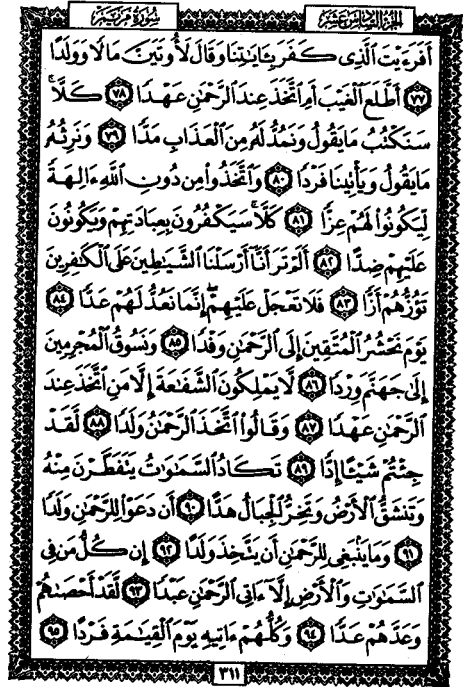 الجُزءُ السَّادِسَ عَشَرَ
سُورَةُ مَرْيَمَ
أَفَرَءَيْتَ ٱلَّذِى كَفَرَ بِـَٔايَـٰتِنَا وَقَالَ لَأُوتَيَنَّ مَالًا وَوَلَدًا
٧٧ أَطَّلَعَ ٱلْغَيْبَ أَمِ ٱتَّخَذَ عِندَ ٱلرَّحْمَـٰنِ عَهْدًا ٧٨ كَلَّا ۚ
سَنَكْتُبُ مَا يَقُولُ وَنَمُدُّ لَهُۥ مِنَ ٱلْعَذَابِ مَدًّا ٧٩ وَنَرِثُهُۥ
مَا يَقُولُ وَيَأْتِينَا فَرْدًا ٨٠ وَٱتَّخَذُوا۟ مِن دُونِ ٱللَّهِ ءَالِهَةً
لِّيَكُونُوا۟ لَهُمْ عِزًّا ٨١ كَلَّا ۚ سَيَكْفُرُونَ بِعِبَادَتِهِمْ وَيَكُونُونَ
عَلَيْهِمْ ضِدًّا ٨٢ أَلَمْ تَرَ أَنَّآ أَرْسَلْنَا ٱلشَّيَـٰطِينَ عَلَى ٱلْكَـٰفِرِينَ
تَؤُزُّهُمْ أَزًّا ٨٣ فَلَا تَعْجَلْ عَلَيْهِمْ ۖ إِنَّمَا نَعُدُّ لَهُمْ عَدًّا ٨٤
يَوْمَ نَحْشُرُ ٱلْمُتَّقِينَ إِلَى ٱلرَّحْمَـٰنِ وَفْدًا ٨٥ وَنَسُوقُ ٱلْمُجْرِمِينَ
إِلَىٰ جَهَنَّمَ وِرْدًا ٨٦ لَّا يَمْلِكُونَ ٱلشَّفَـٰعَةَ إِلَّا مَنِ ٱتَّخَذَ عِندَ
ٱلرَّحْمَـٰنِ عَهْدًا ٨٧ وَقَالُوا۟ ٱتَّخَذَ ٱلرَّحْمَـٰنُ وَلَدًا ٨٨ لَّقَدْ
جِئْتُمْ شَيْـًٔا إِدًّا ٨٩ تَكَادُ ٱلسَّمَـٰوَٰتُ يَتَفَطَّرْنَ مِنْهُ
وَتَنشَقُّ ٱلْأَرْضُ وَتَخِرُّ ٱلْجِبَالُ هَدًّا ٩٠ أَن دَعَوْا۟ لِلرَّحْمَـٰنِ وَلَدًا
٩١ وَمَا يَنۢبَغِى لِلرَّحْمَـٰنِ أَن يَتَّخِذَ وَلَدًا ٩٢ إِن كُلُّ مَن فِى
ٱلسَّمَـٰوَٰتِ وَٱلْأَرْضِ إِلَّآ ءَاتِى ٱلرَّحْمَـٰنِ عَبْدًا ٩٣ لَّقَدْ أَحْصَىٰهُمْ
وَعَدَّهُمْ عَدًّا ٩٤ وَكُلُّهُمْ ءَاتِيهِ يَوْمَ ٱلْقِيَـٰمَةِ فَرْدًا ٩٥
٣١١